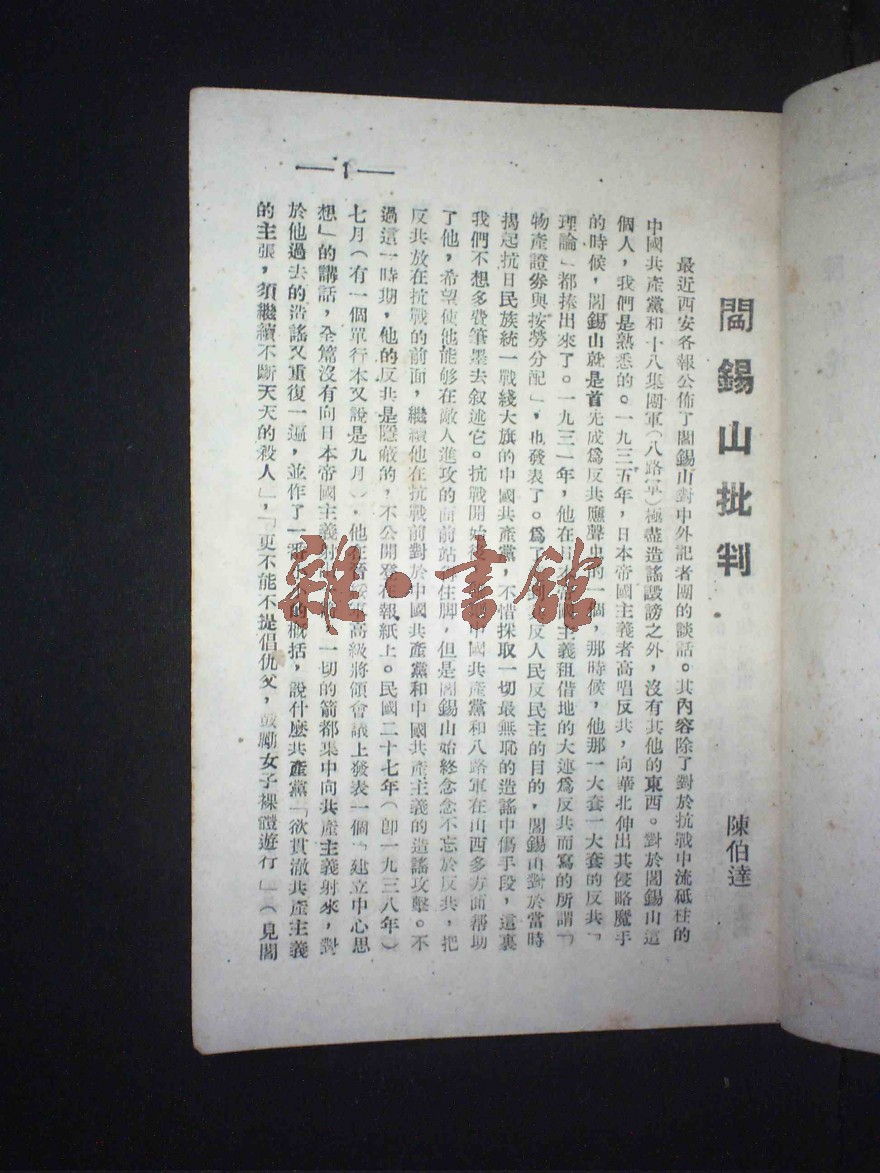 閻錫山批判
陳伯達
最近西安各報公佈了閻錫山對中外記者團的談話。其內容除了對於抗戰中流砥柱的
中國共產黨和十八集團軍(八路軍)極盡造謠譭謗之外，沒有其他的東西。對於閻錫山這
個人，我們是熟悉的。一九三五年，日本帝國主義者高唱反共，向華北伸出其侵略魔手
的時候，閻錫山就是首先成爲反共應聲虫的一個，那時候，他那一大套一大套的反共「
理論」都搽出來了。一九三一年，他在日本帝國主義租借地的大連爲反共而寫的所謂「
物產證券與按勞分配」，也發表了。爲了 反人民反民主的目的，閻錫山對於當時
揭起抗日民族統一戰綫大旗的中國共產黨，不惜採取一切最無恥的造謠中傷手段，這裏
我們不想多費筆墨去叙述它。抗戰開始後 中國共產黨和八路軍在山西多方面帮助
了他，希望使他能够在敵人進攻的面前站得住脚，但是閻錫山始終念念不忘於反共，把
反共放在抗戰的前面，繼續他在抗戰前對於中國共產黨和中國共產主義的造謠攻擊。不
過這一時期，他的反共是隱蔽的，不公開登在報紙上。民國二十七年(卽一九三八年)
七月(有一個單行本又說是九月)，他在 高級將領會議上發表一個「建立中心思
想」的講話，全篇沒有向日本帝國主義射 一切的箭都集中向共產主義射來，對
於他過去的造謠又重復一遍，並作了一番 的概括，說什麽共產黨「欲貫澈共產主義
的主張，須繼續不斷天天的殺人」，「更不能不提倡仇父，鼓勵女子裸體遊行」(見閻
—1—
雜·書館